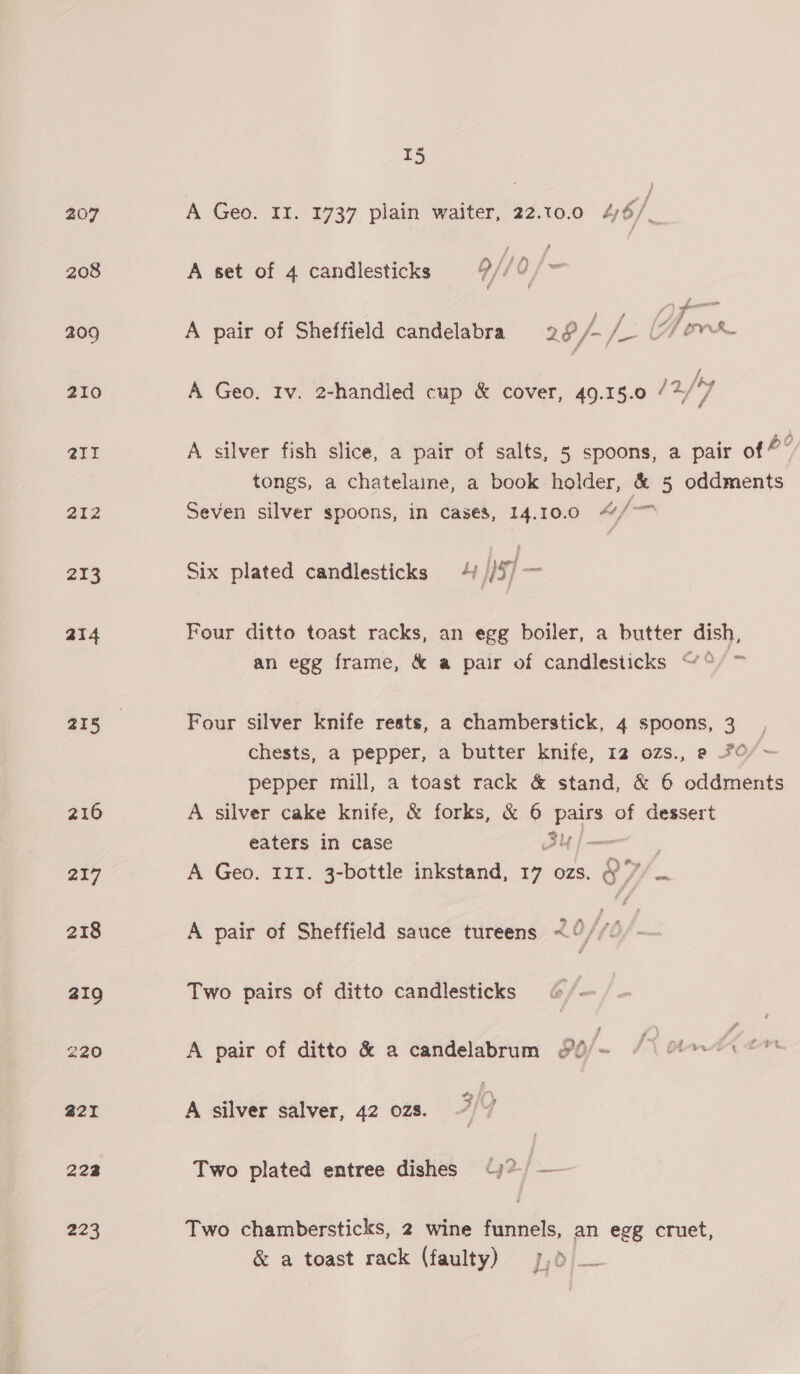 15
207 A Geo. II. 1737 plain waiter, 22.10.0 46/_
208 A set of 4 candlesticks 9/10/-
209 A pair of Sheffield candelabra 28/-/_
210 A Geo. IV. 2-handled cup & cover, 49.15.0 12/7
211 A silver fish slice, a pair of salts, 5 spoons, a pair of
tongs, a chatelaine, a book holder, & 5 oddments
212 Seven silver spoons, in cases, 14.10.0
213 Six plated candlesticks 4/15/-
214 Four ditto toast racks, an egg boiler, a butter dish,
an egg frame, & a pair of candlesticks
215 Four silver knife rests, a chamberstick, 4 spoons, 3
chests, a pepper, a butter knife, 12 ozs., e 50/-
pepper mill, a toast rack & stand, & 6 oddments
216 A silver cake knife, & forks, & 6 pairs of dessert
eaters in case 34/-
217 A Geo. III. 3-bottle inkstand, 17 ozs. 87/-
218 A pair of Sheffield sauce tureens 20/10/-
219 Two pairs of ditto candlesticks 6/-/-
220 A pair of ditto & a candelabrum 80/-
221 A silver salver, 42 ozs. 3/9
222 Two plated entree dishes 42/-
223 Two chambersticks, 2 wine funnels, an egg cruet,
& a toast rack (faulty)